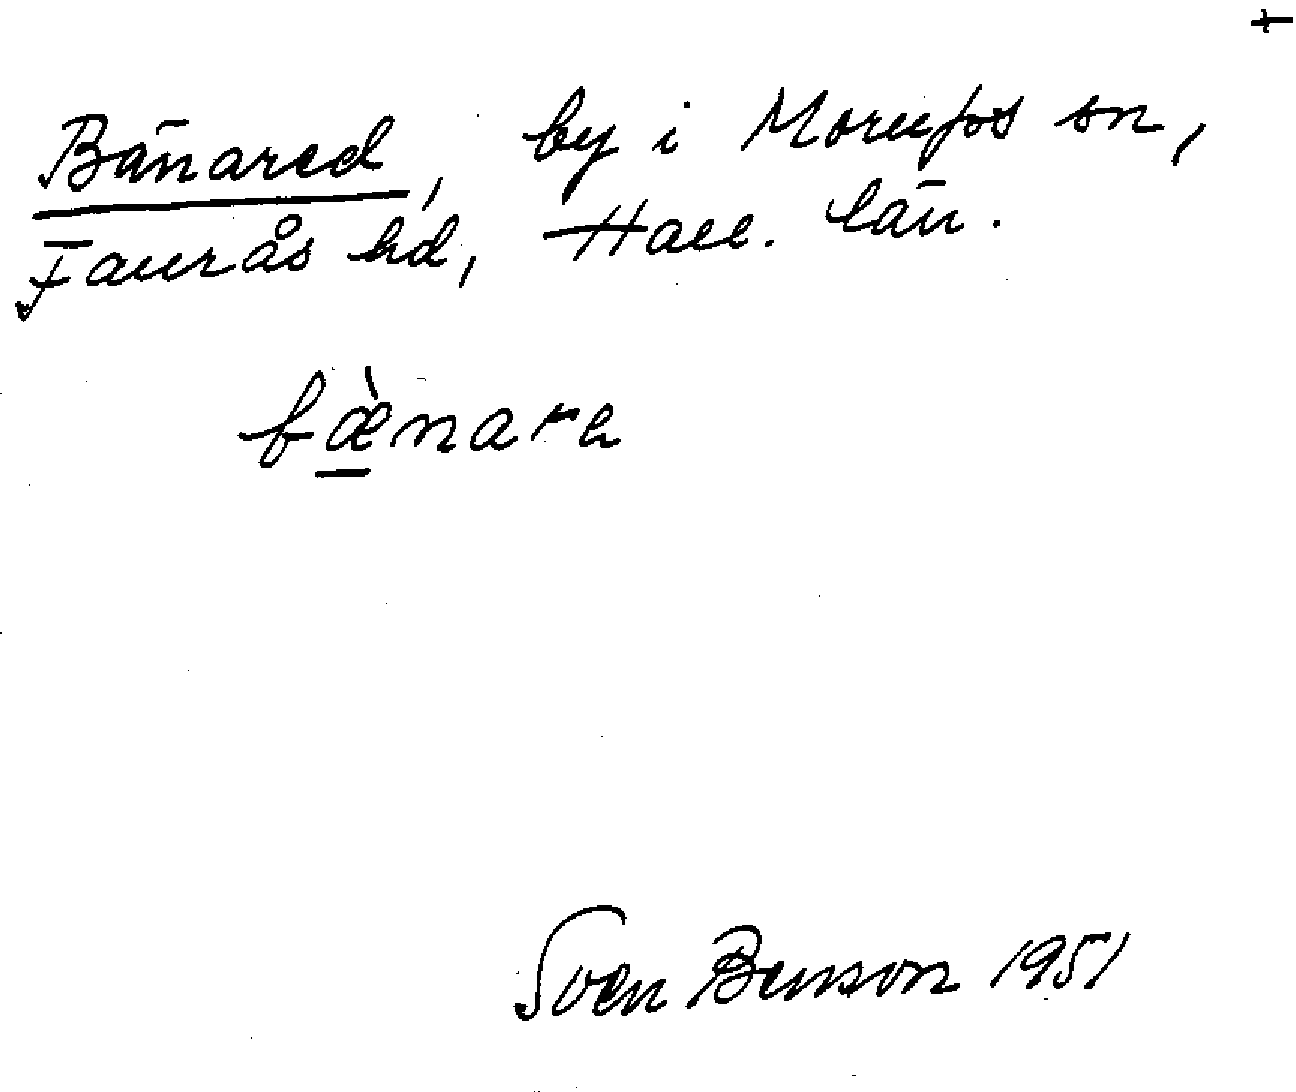 Bänared, by i Morups sn,
Faurås hd, Hall. län.
bæ̀nara
Sven Benson 1951